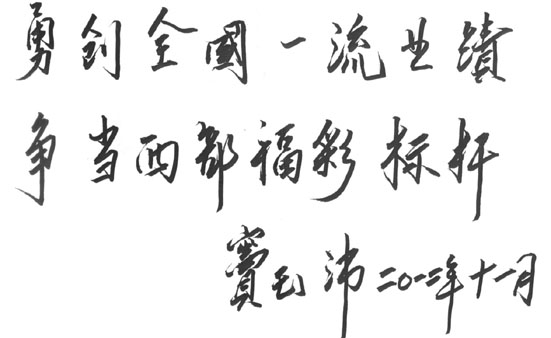 勇创全國一流业蹟
争当西部福彩标杆
窦玉沛 二〇一二年十一月